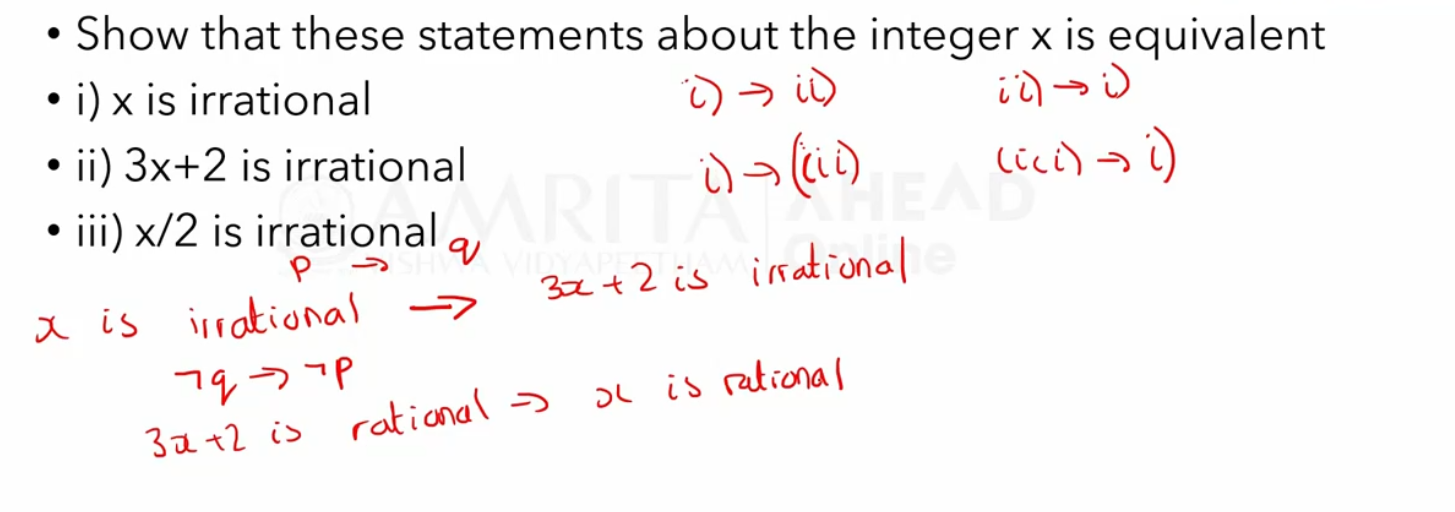 • Show that these statements about the integer x is equivalent
• i) x is irrational
i) → ii)
ii) → i)
• ii) 3x+2 is irrational
i) → (iii)
(iii) → i)
• iii) x/2 is irrational
AMRITA AHEAD
VISHWA VIDYAPEETHAM Online
p → q
x is irrational → 3x + 2 is irrational
¬q → ¬p
3x+2 is rational → x is rational